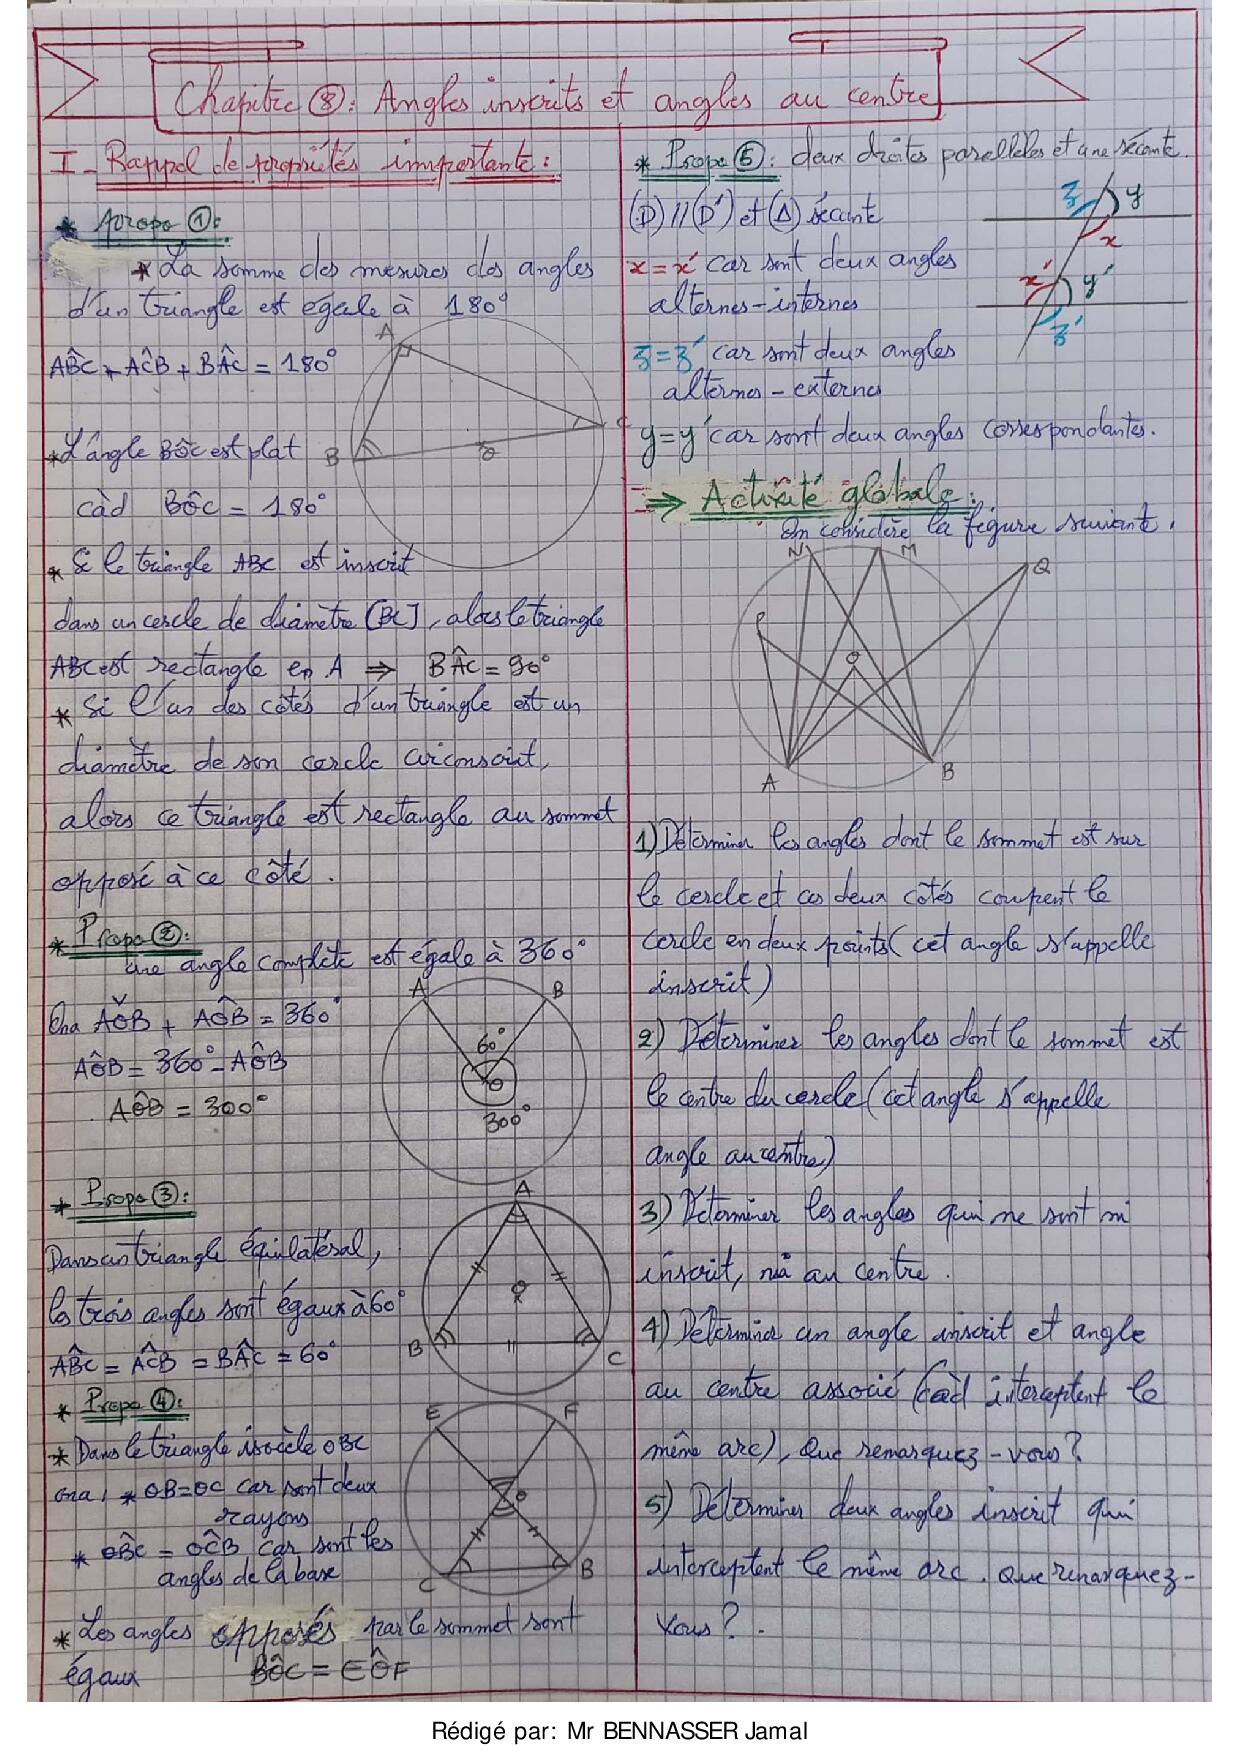 Chapitre ⑧: Angles inscrits et angles au centre
I - Rappel de propriétés immportante:
* propo ①:
* La somme des mesures des angles
d'un triangle est égale à 180°
AB̂C + AĈB + BÂC = 180°
A
B
C
O
* L'angle BÔC est plat
càd BÔC = 180°
* Si le triangle ABC est inscrit
dans un cercle de diamètre [BC], alors le triangle
ABC est rectangle en A ⇒ BÂC = 90°
* Si l'un des côtés d'un triangle est un
diamètre de son cercle circonscrit,
alors ce triangle est rectangle au sommet
opposé à ce côté.
* Propo ②:
une angle complète est égale à 360°
Ona AǑB + AÔB = 360°
AÔB = 360° - AÔB
AÔB = 300°
A
B
60°
O
300°
* Propo ③:
Dans un triangle équilatéral,
les trois angles sont égaux à 60°
AB̂C = AĈB = BÂC = 60°
A
B
C
* Propo ④:
* Dans le triangle isocèle OBC
ona, * OB=OC car sont deux
rayons
* OB̂C = OĈB car sont les
angles de la base
E
F
O
C
B
* Les angles opposés par le sommet sont
égaux BÔC = EÔF
* Propo ⑤: deux droites parallèles et une sécante.
(D) // (D') et (Δ) sécante
x = x' car sont deux angles
alternes-internes
z = z' car sont deux angles
alternes - externes
y = y' car sont deux angles correspondantes.
z
y
x
x'
y'
z'
⇒ Activité globale:
On considère la figure suivante.
N
M
Q
P
O
A
B
1) Déterminer les angles dont le sommet est sur
le cercle et ces deux côtés coupent le
cercle en deux points (cet angle s'appelle
inscrit)
2) Déterminer les angles dont le sommet est
le centre du cercle (cet angle s'appelle
angle au centre)
3) Déterminer les angles qui ne sont ni
inscrit, ni au centre.
4) Déterminer un angle inscrit et angle
au centre associé (càd interceptent le
même arc), que remarquez-vous?
5) Déterminer deux angles inscrit qui
interceptent le même arc. Que remarquez-
vous?.
Rédigé par: Mr BENNASSER Jamal